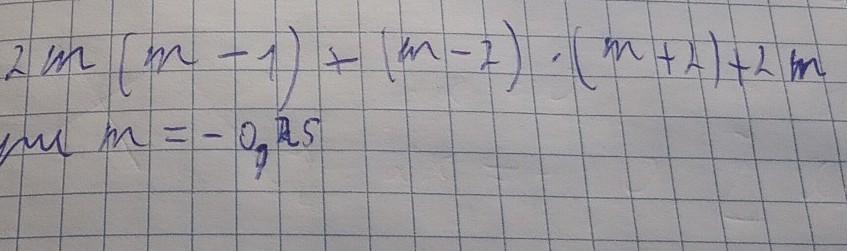 2m(m-1)+(m-2)·(m+2)+2m
при m=-0,25